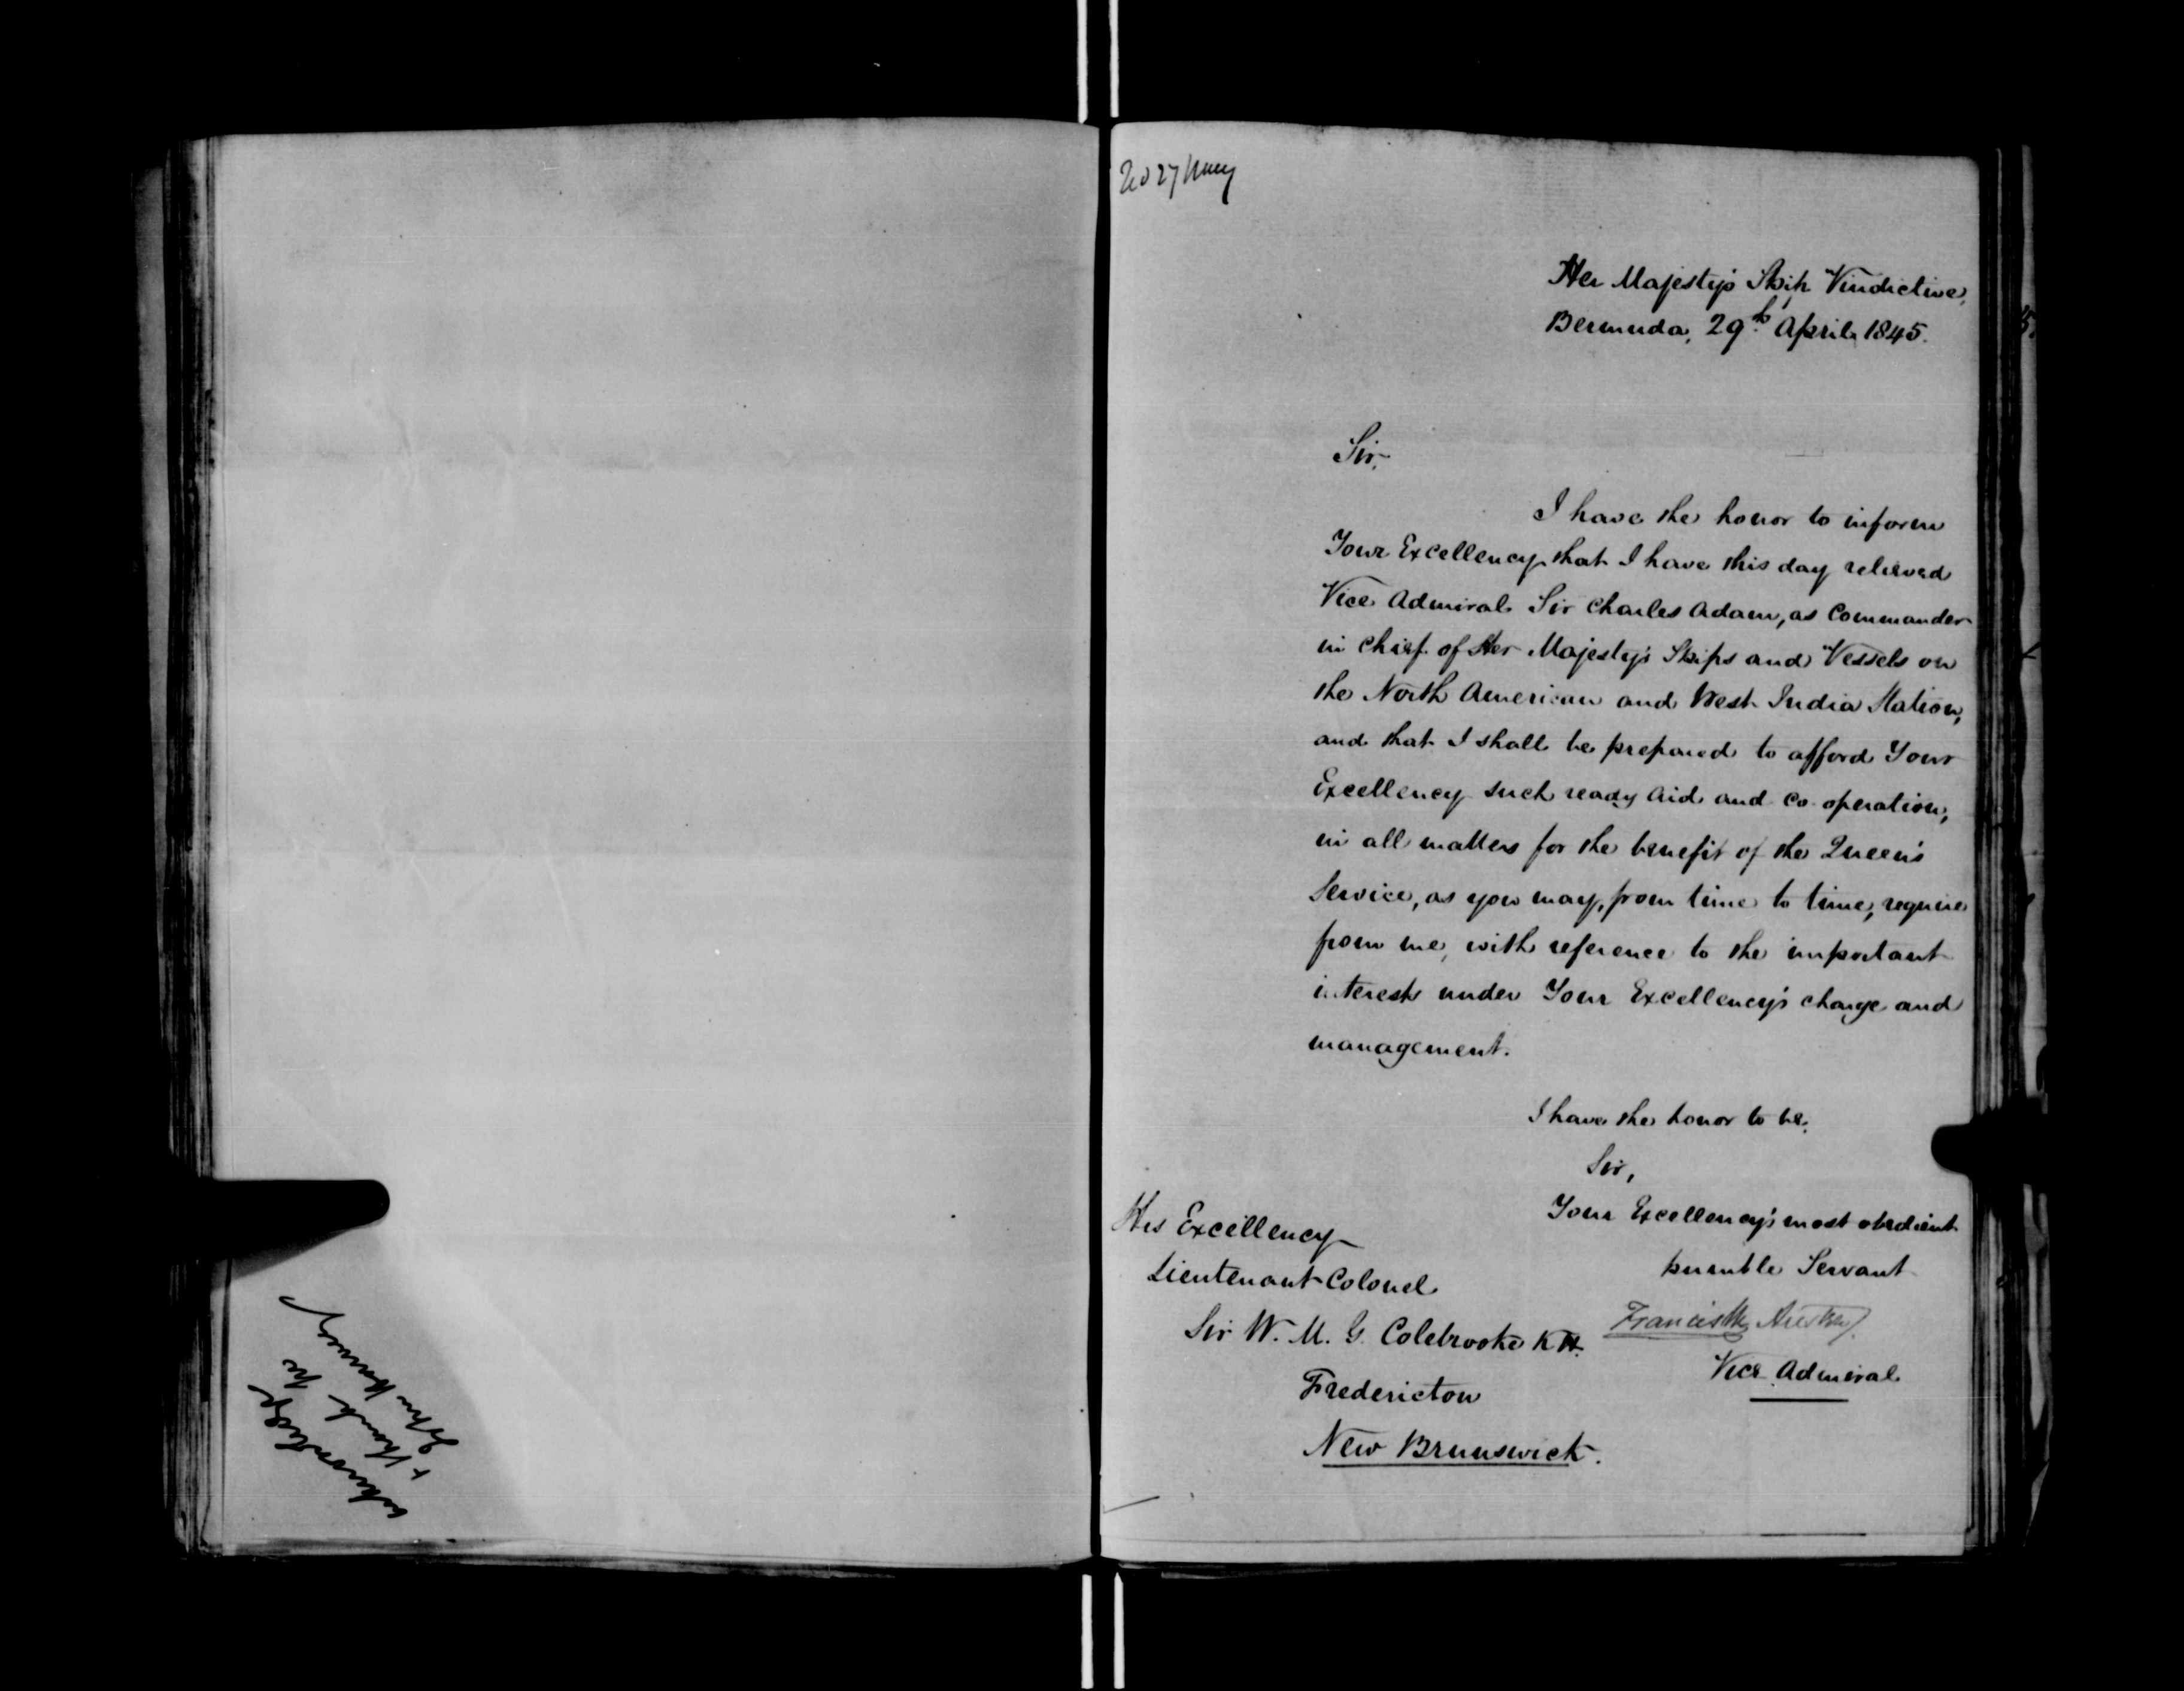 Her Majesty's Ship Vindictive,
Bermuda, 29th April 1845.
Sir,
I have the honor to inform
Your Excellency that I have this day relieved
Vice Admiral Sir Charles Adam, as Commander
in Chief of Her Majesty's Ships and Vessels on
the North American and West India Station,
and that I shall be prepared to afford Your
Excellency such ready Aid and Co operation,
in all matters for the benefit of the Queen's
Service, as you may, from time to time, require
from me, with reference to the important
interests under Your Excellency's charge and
management.
I have the honor to be,
Sir,
Your Excellency's most obedient
humble Servant
Francis W Austen
Vice Admiral
His Excellency
Lieutenant Colonel
Sir W. M. G. Colebrooke K H.
Fredericton
New Brunswick.
27 May
acknowledge
+ thank